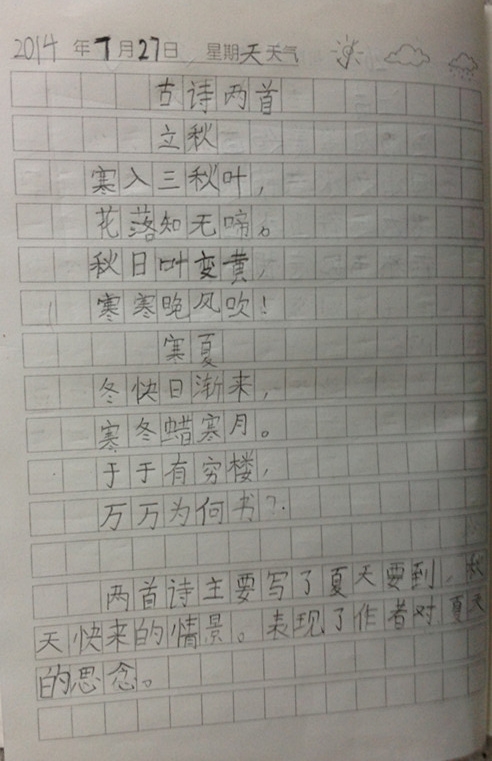 2014年7月27日 星期天天气
古诗两首
立秋
寒入三秋叶，
花落知无啼。
秋日叶变黄，
寒寒晚风吹！
寒夏
冬快日渐来，
寒冬蜡寒月。
于于有穷楼，
万万为何书？
两首诗主要写了夏天要到，秋
天快来的情景。表现了作者对夏天
的思念。